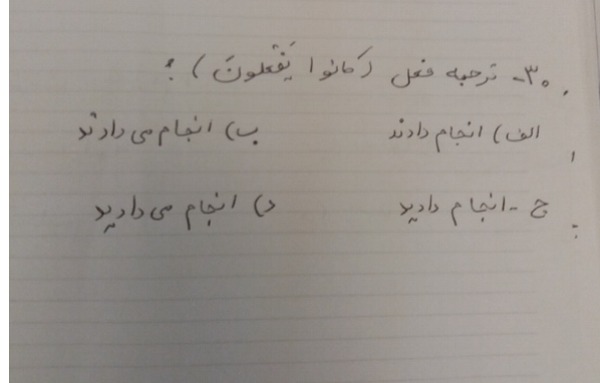 ۳۰- ترجمه فعل (کانوا یَفْعَلونَ) :
الف) انجام دادند ب) انجام می دادند
ج - انجام دادید د) انجام می دادید